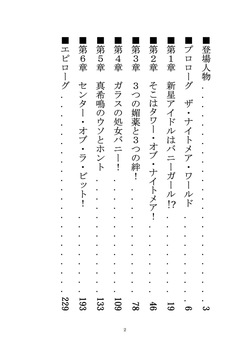 ■登場人物........................3
■プロローグ　ザ・ナイトメア・ワールド....6
■第1章　新星アイドルはバニーガール!?....19
■第2章　そこはタワー・オブ・ナイトメア!....46
■第3章　3つの媚薬と3つの絆!........78
■第4章　ガラスの処女バニー!........109
■第5章　真希鳴のウソとホント........133
■第6章　センター・オブ・ラ・ビット!....193
■エピローグ........................229
3